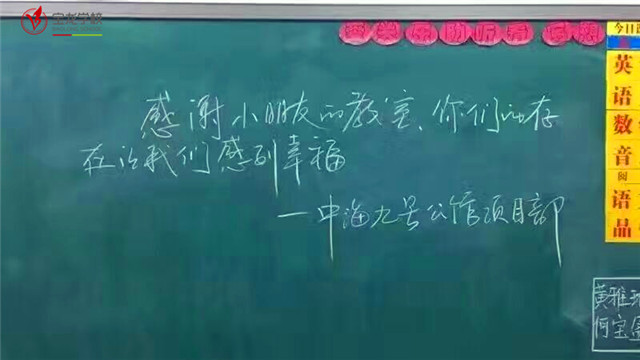 今日
英
语
数
音
阅
语
品
感谢小朋友的教室、你们的存
在让我们感到幸福
—中海九号公馆项目部
黄雅
何宝